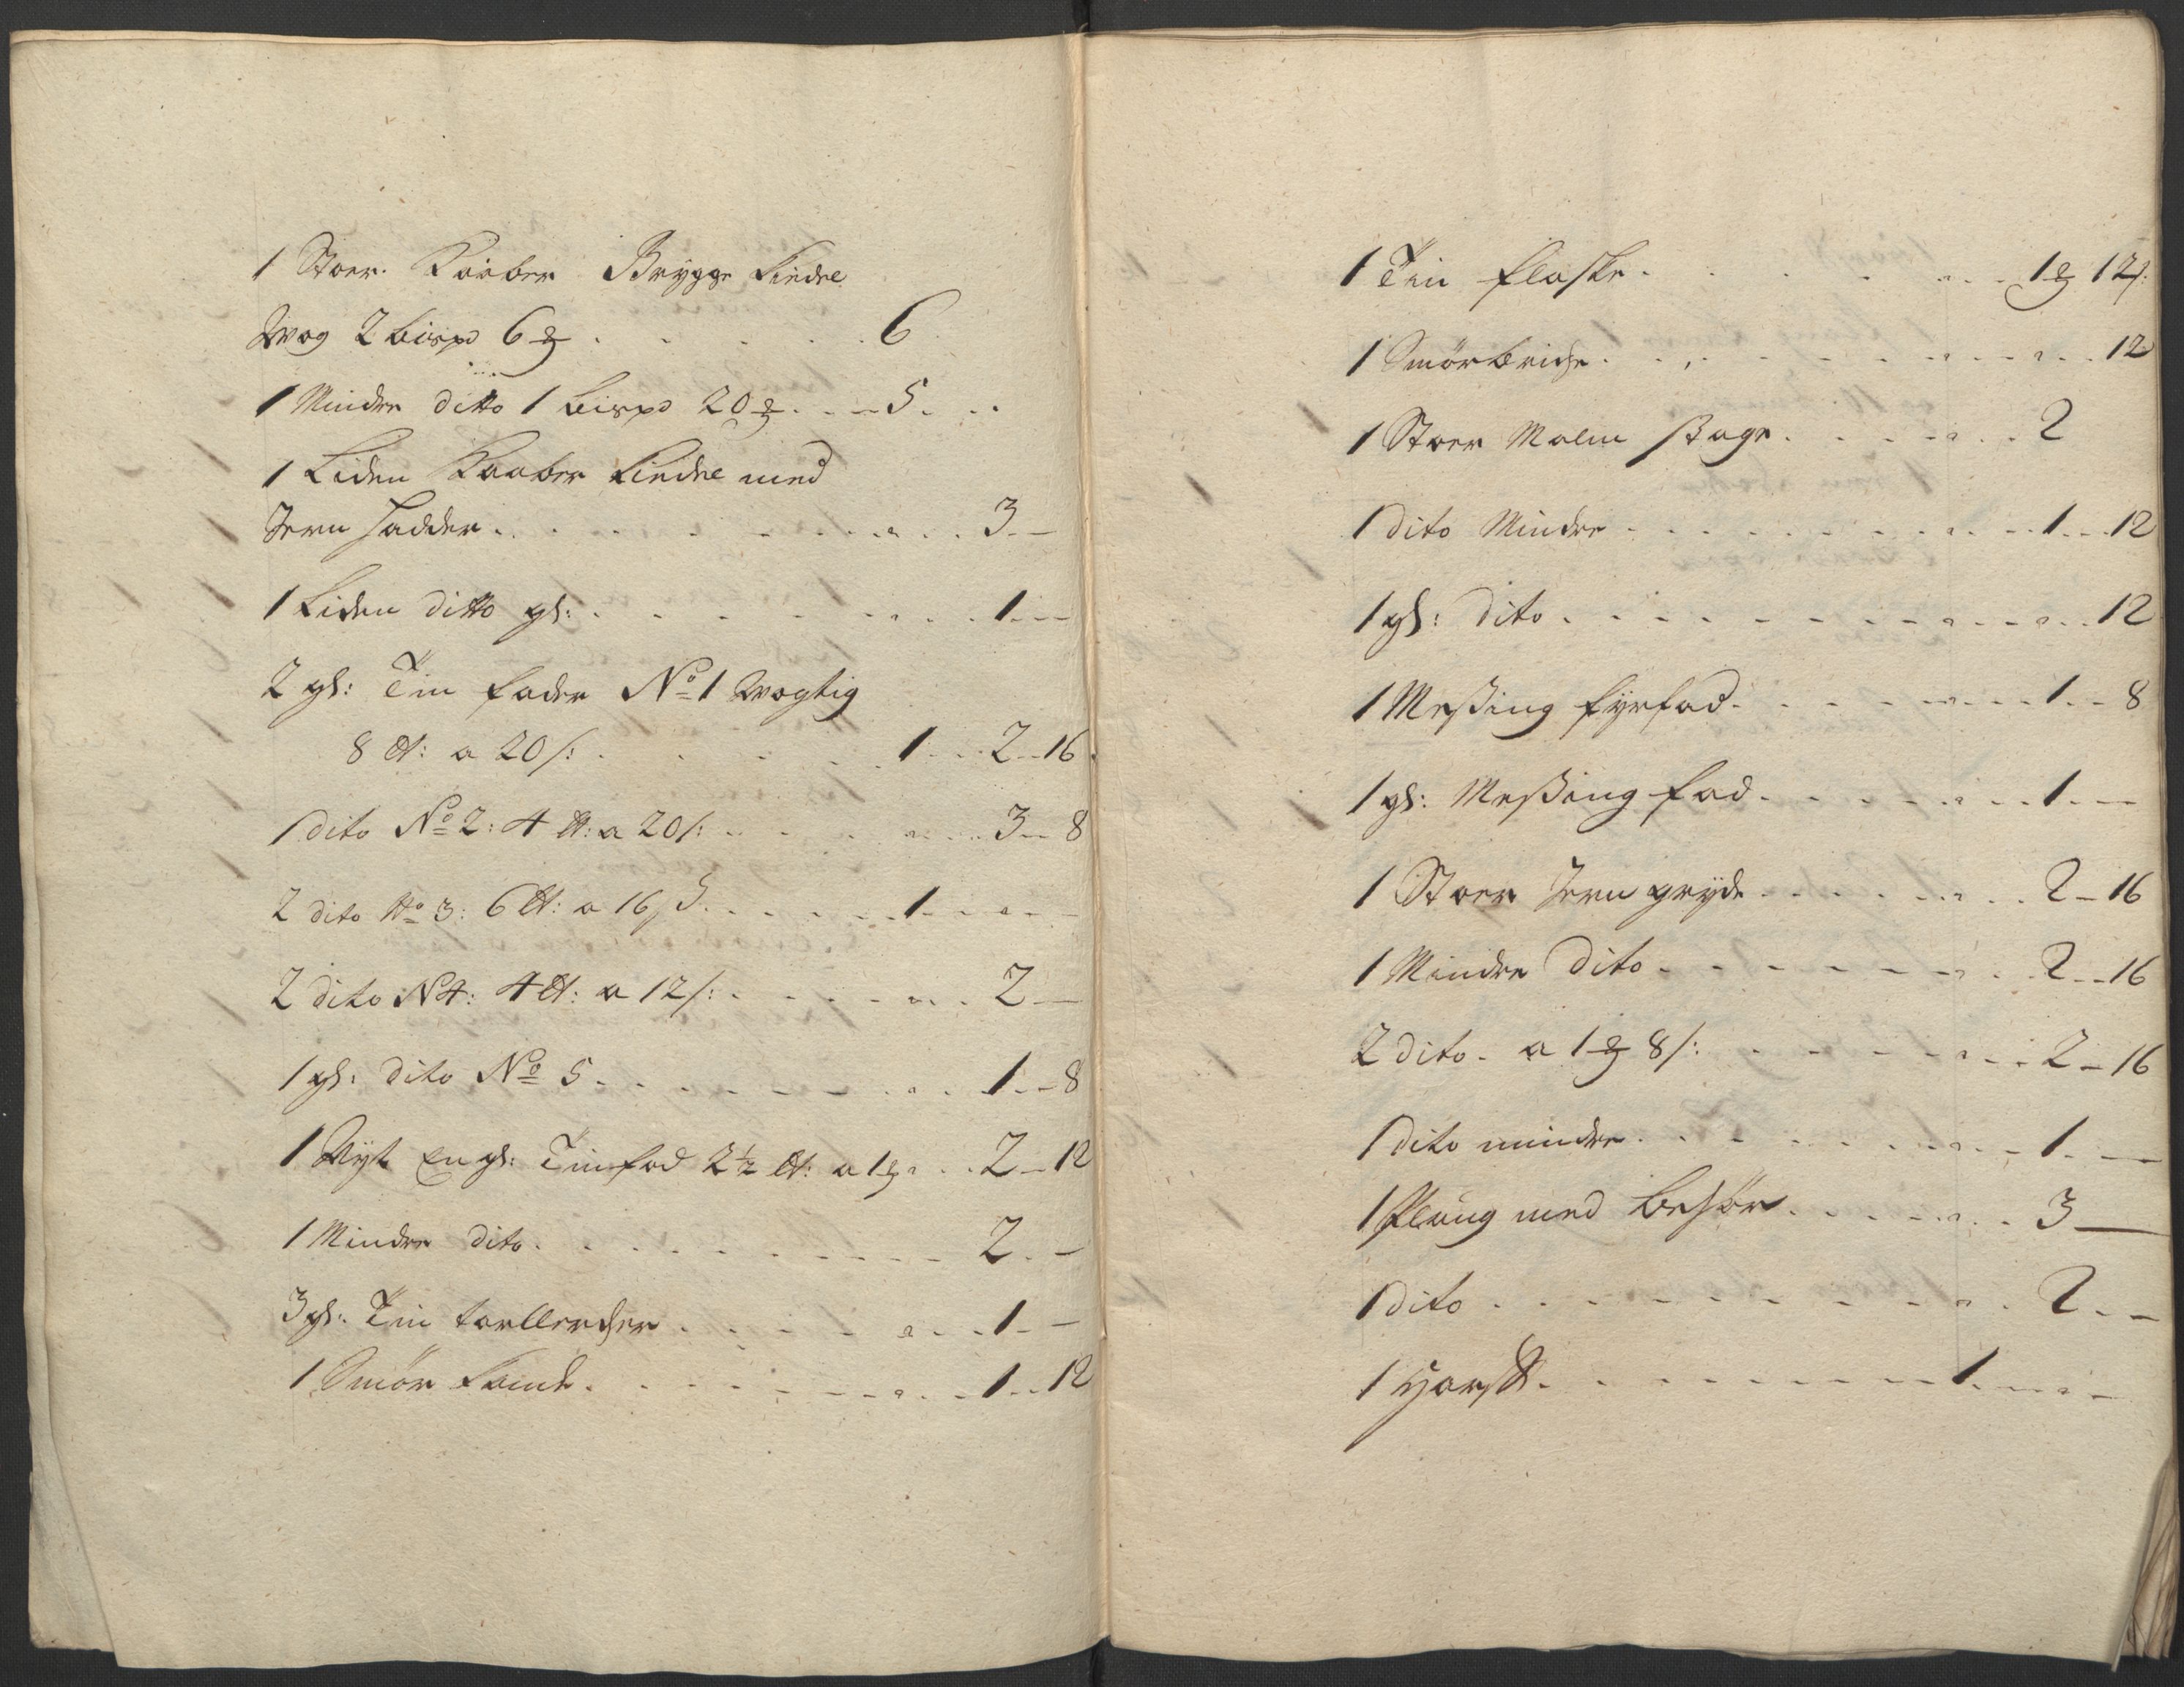 1 Stoer Kaaber Brygge Kiedel
Wog 2 bispd 6 ℔ . . . 6
1 Mindre ditto 1 bispd 20 ℔ . . . 5
1 Liden Kaaber Kiedel med
Jern hadder . . . 3 –
1 Liden ditto gl: . . . 1 –
2 gl: Tin fade No 1 Wogtig
8 ℔: a 20 s: . . . 1 – 2 – 16
1 dito No 2: 4 ℔: a 20 s: . . . 3 – 8
2 dito No 3: 6 ℔: a 16 s . . . 1 –
2 dito N 4: 4 ℔: a 12 s: . . . 2 –
1 gl: dito No 5 . . . 1 – 8
1 Nyt Engl: Tinfad 2 1/2 ℔: a 1 . . . 2 – 12
1 Mindre dito . . . 2 –
3 gl: Tin tallercher . . . 1 –
1 Smør . . . 1 – 12
1 Tin flaske . . . 1 12 s:
1 Smørbriche . . . 12
1 Stoer Malm stage . . . 2
1 dito Mindre . . . 1 – 12
1 gl: dito . . . 12
1 Messing fyrfad . . . 1 – 8
1 gl: Messing fad . . . 1 –
1 Stoer Jern gryde . . . 2 – 16
1 Mindre dito . . . 2 – 16
2 dito a 1 8 s: . . . 2 – 16
1 dito mindre . . . 1 –
1 Ploug med behør . . . 3 –
1 dito . . . 2 –
1 . . . 1 –